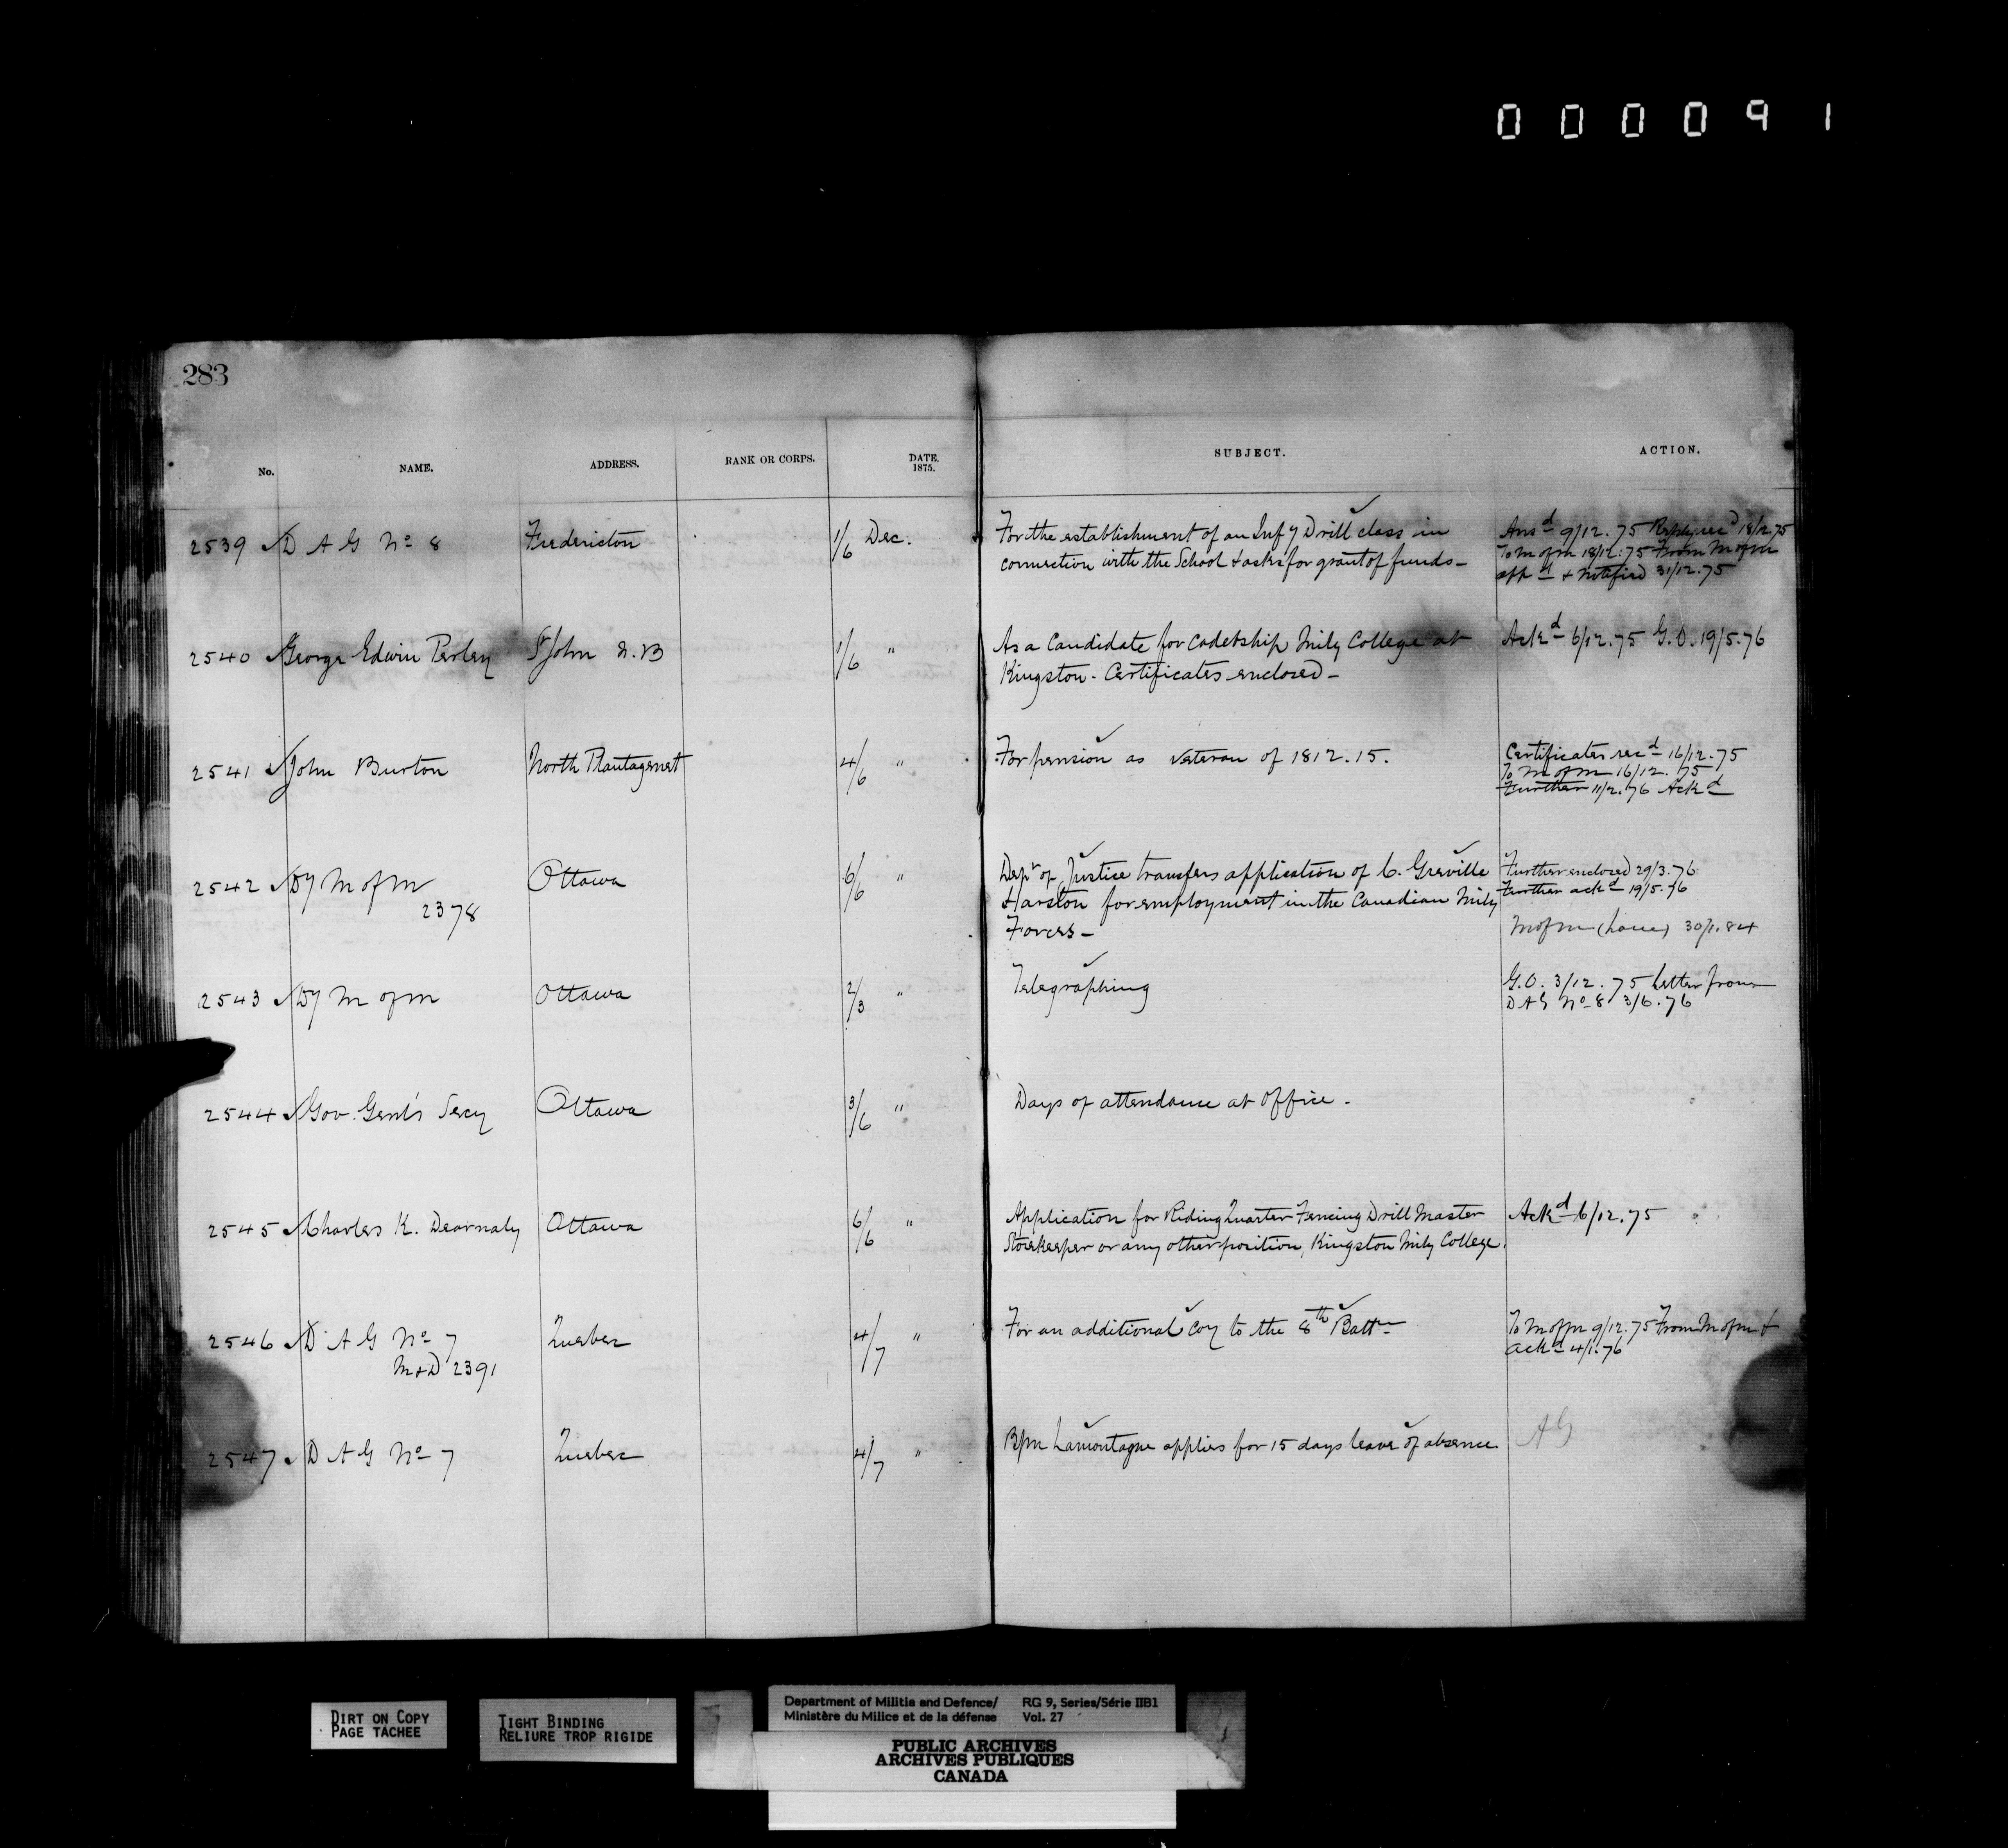 000091
283
No. NAME. ADDRESS. RANK OR CORPS. DATE. 1875. SUBJECT. ACTION.
2539 D A G No 8 Fredericton 1/6 Dec. For the establishment of an Infy Drill class in Ansd 9/12.75 Reply recd 18/12.75
connection with the School & asks for grant of funds- To M of M 18/12.75 From M of M
appd & notified 31/12.75
2540 George Edwin Perley St John N.B 1/6 " As a Candidate for Cadetship Mily College at Ackd 6/12.75 G.O. 19/5.76
Kingston. Certificates enclosed-
2541 John Burton North Plantagenet 4/6 " For pension as veteran of 1812.15. Certificates recd 16/12.75
To M of M 16/12.75
Further 11/2.76 Ackd
2542 Dy M of M Ottawa 6/6 " Dept of Justice transfers application of C. Greville Further enclosed 29/3.76
2378 Harston for employment in the Canadian Mily Further ackd 19/5.76
Forces- M of M 30/1.84
2543 Dy M of M Ottawa 2/3 " Telegraphing G.O. 3/12.75 Letter from
D A G No 8 3/6.76
2544 Gov. Genl's Secy Ottawa 3/6 " Days of attendance at office.
2545 Charles K. Dearnaly Ottawa 6/6 " Application for Riding Quarter Fencing Drill Master Ackd 6/12.75
Storekeeper or any other position, Kingston Mily College.
2546 D A G No 7 Quebec 4/7 " For an additional Coy to the 8th Battn To M of M 9/12.75 From M of M &
M&D 2391 ackd 4/1.76
2547 D A G No 7 Quebec 4/7 " Lamontagne applies for 15 days leave of absence. AG
DIRT ON COPY
PAGE TACHEE
TIGHT BINDING
RELIURE TROP RIGIDE
Department of Militia and Defence/ RG 9, Series/Série IIB1
Ministère du Milice et de la défense Vol. 27
PUBLIC ARCHIVES
ARCHIVES PUBLIQUES
CANADA